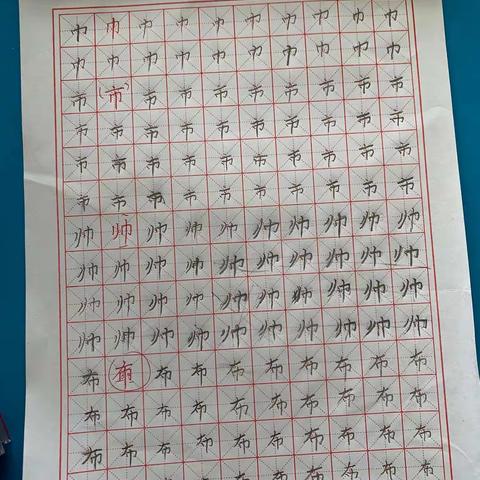 巾巾巾巾巾巾巾巾巾巾
巾巾巾巾巾巾巾巾巾巾
市市市市市市市市市市
市市市市市市市市市市
市市市市市市市市市市
市市市市市市市市市市
帅帅帅帅帅帅帅帅帅帅
帅帅帅帅帅帅帅帅帅帅
帅帅帅帅帅帅帅帅帅帅
帅帅帅帅帅帅帅帅帅帅
布布布布布布布布布布
布布布布布布布布布布
布布布布布布布布布布
布布布布布布布布布布